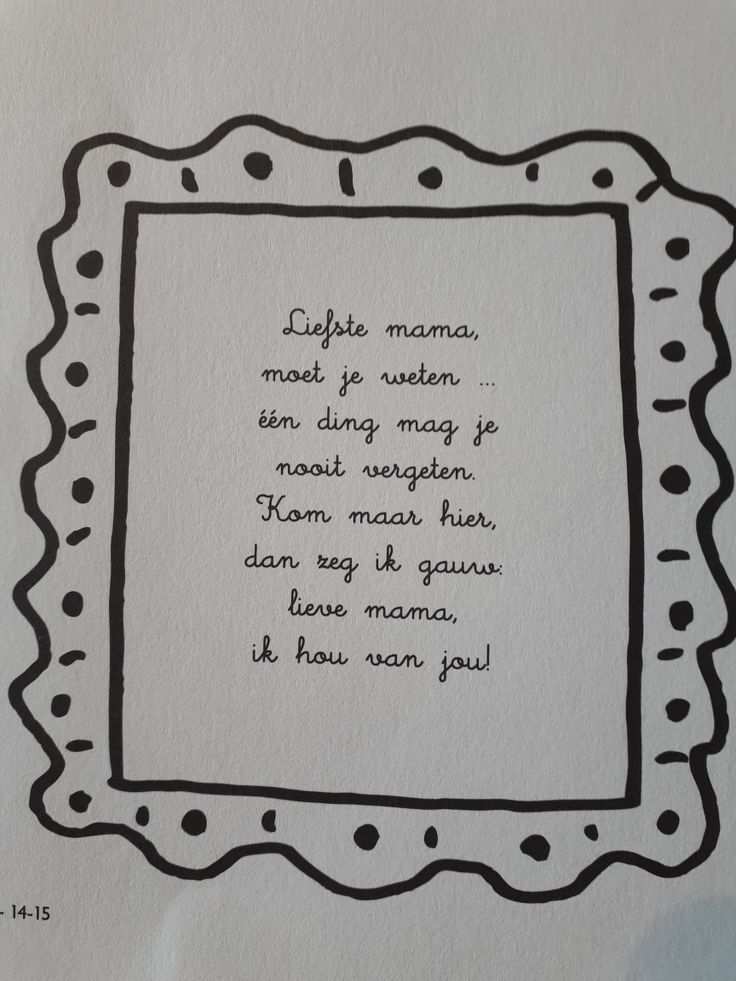 Liefste mama,
moet je weten ...
één ding mag je
nooit vergeten.
Kom maar hier,
dan zeg ik gauw:
lieve mama,
ik hou van jou!
- 14-15